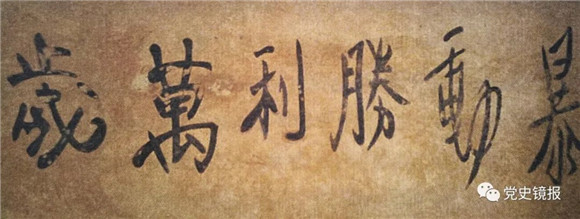 暴動勝利萬歲
党史镜报